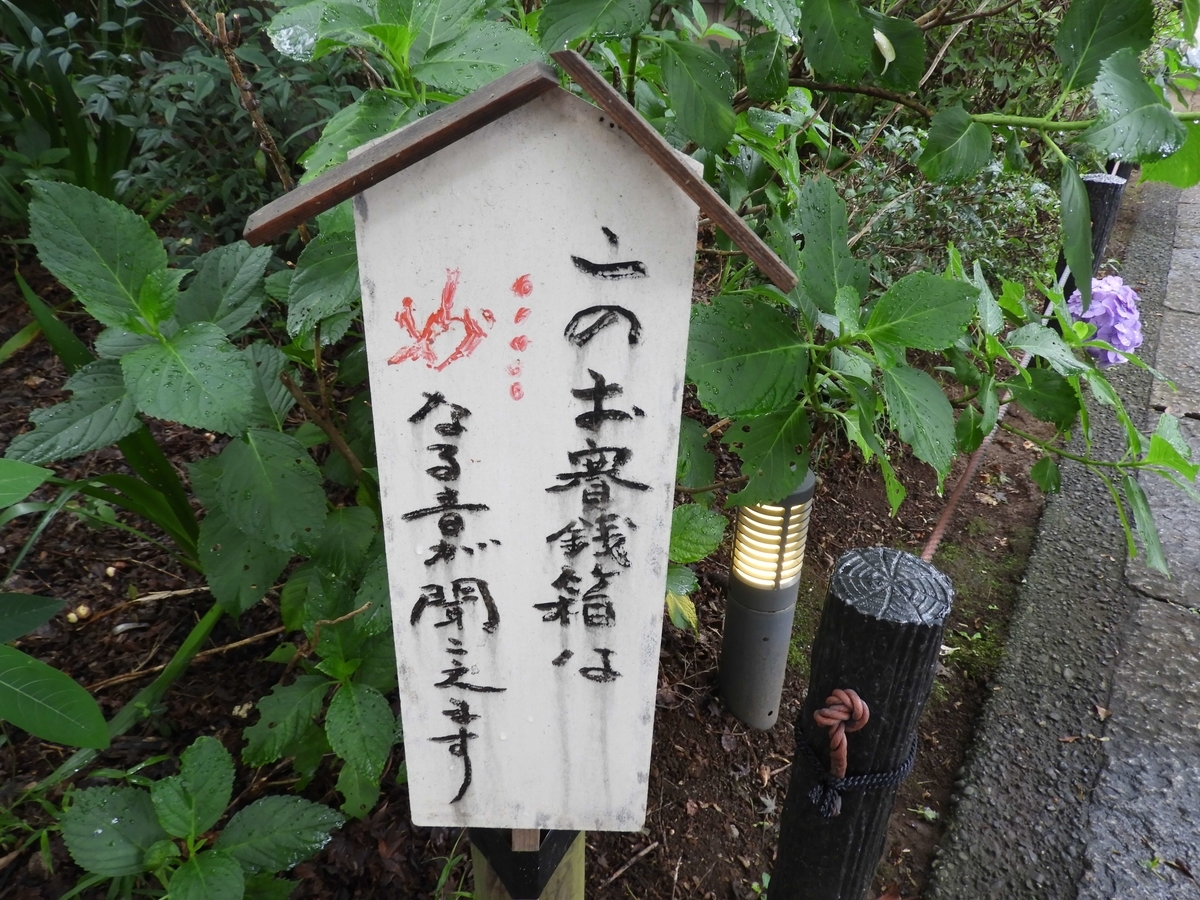 このお賽銭箱は
妙なる音が聞こえます